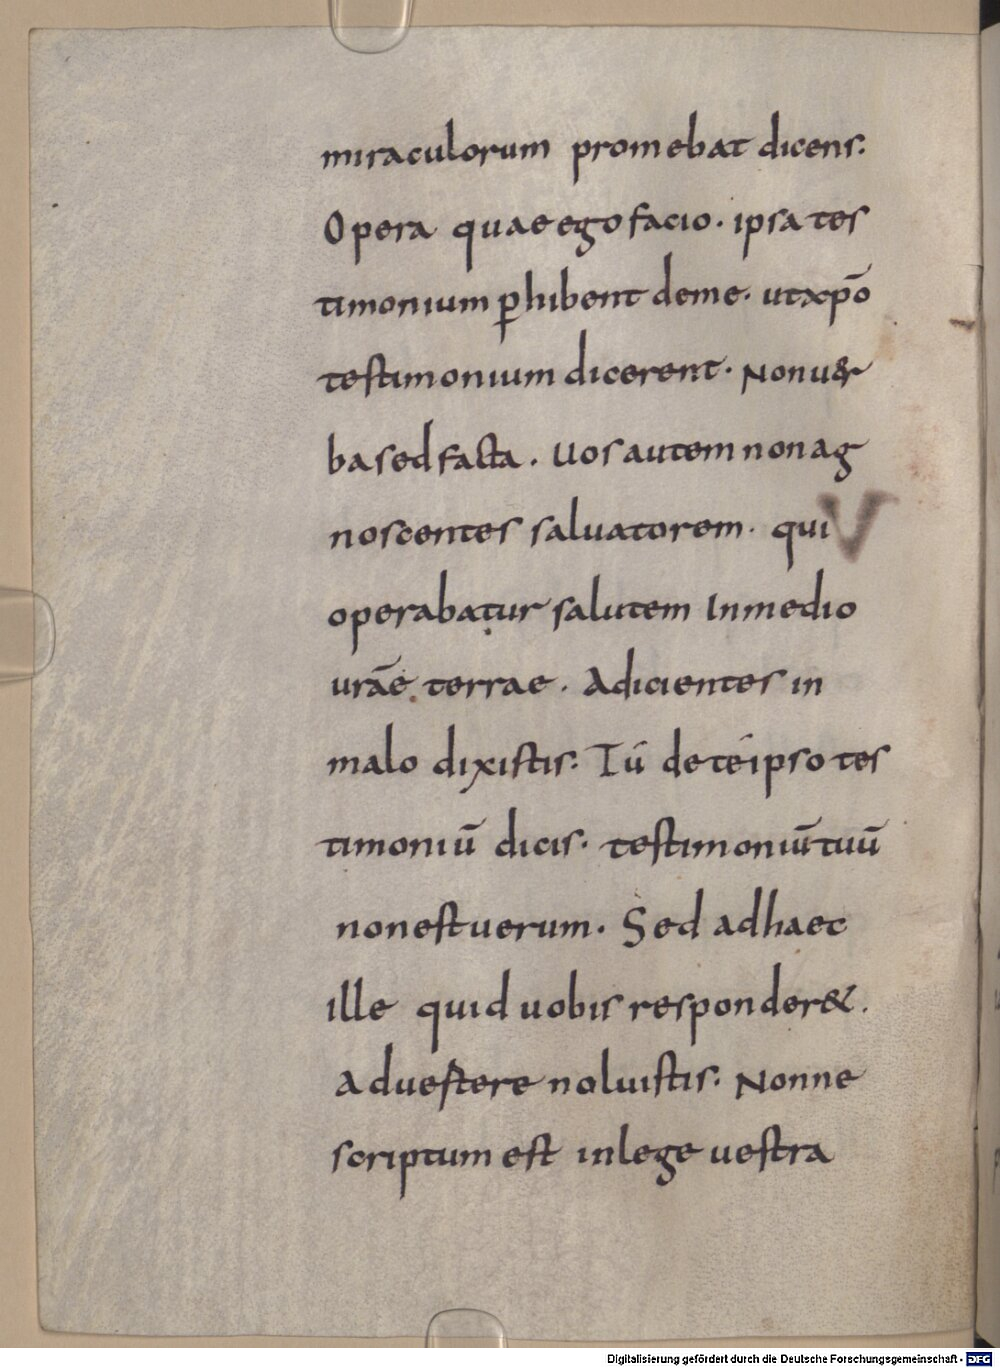 miraculorum promebat dicens.
Opera quae ego facio. ipsa tes
timonium p̱hibent deme. ut xp̄o
testimonium dicerent. Non uer
ba sed facta. Uos autem non ag
noscentes saluatorem. qui V
operabatur salutem In medio
urāe terrae. Adicientes in
malo dixistis. Tú de téipso tes
timoniū dicis. testimoniū tuū
non est uerum. Sed ad haec
ille quid uobis responder&.
aduertere noluistis. Nonne
scriptum est in lege uestra
Digitalisierung gefördert durch die Deutsche Forschungsgemeinschaft - DFG